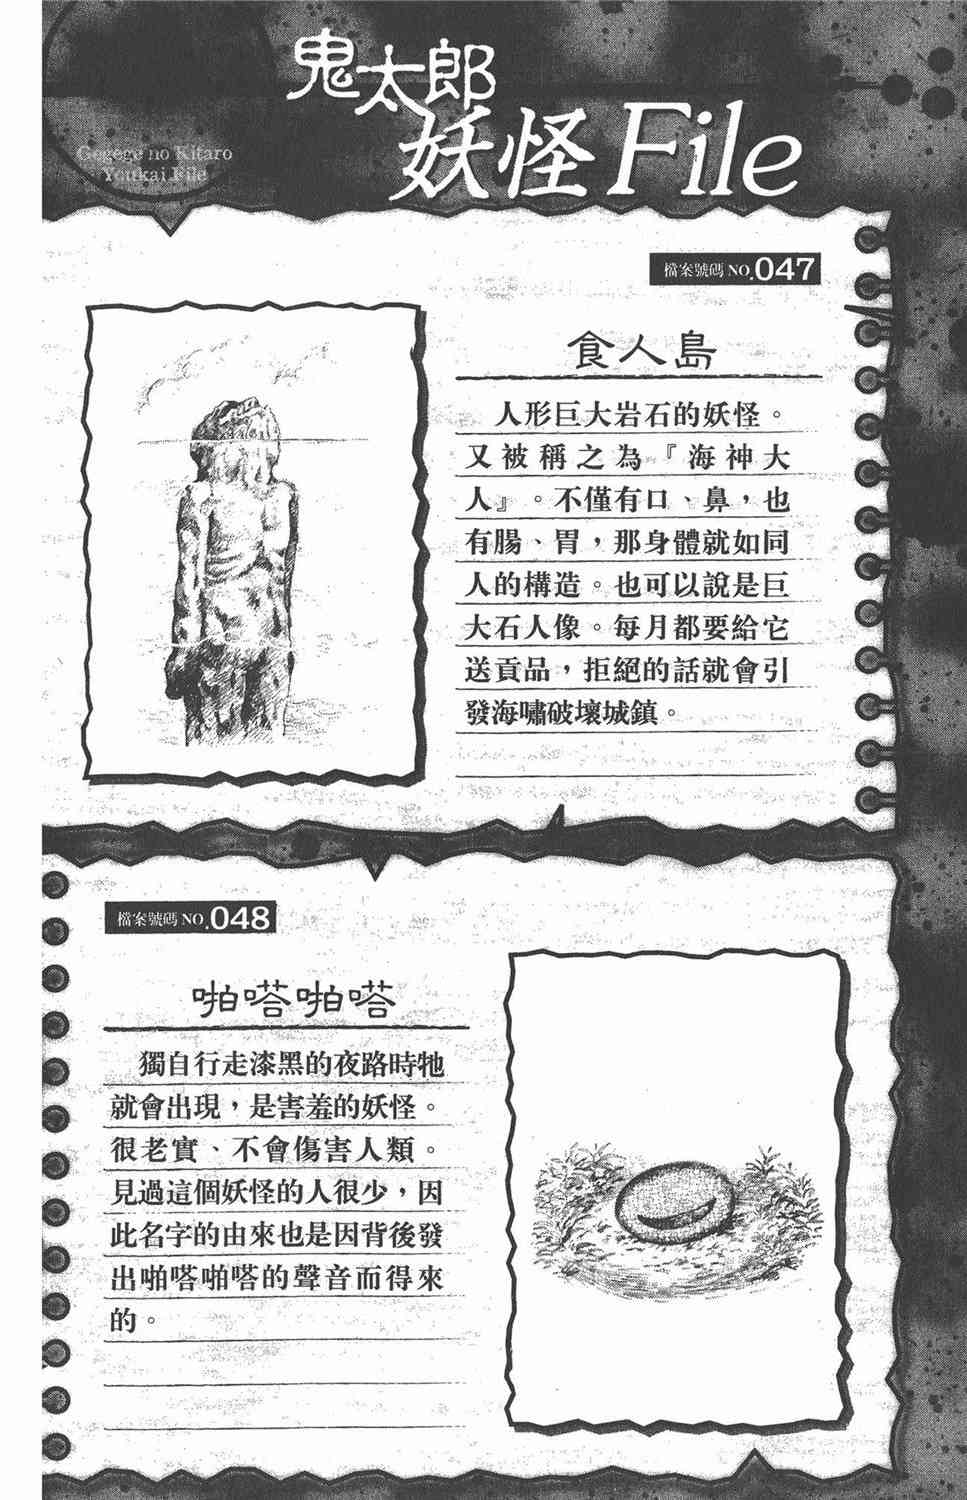 鬼太郎
妖怪File
Gegege no Kitaro
Youkai File
檔案號碼 NO.047
食人島
人形巨大岩石的妖怪。
又被稱之為『海神大
人』。不僅有口、鼻，也
有腸、胃，那身體就如同
人的構造。也可以說是巨
大石人像。每月都要給它
送貢品，拒絕的話就會引
發海嘯破壞城鎮。
檔案號碼 NO.048
啪嗒啪嗒
獨自行走漆黑的夜路時牠
就會出現，是害羞的妖怪。
很老實、不會傷害人類。
見過這個妖怪的人很少，因
此名字的由來也是因背後發
出啪嗒啪嗒的聲音而得來
的。